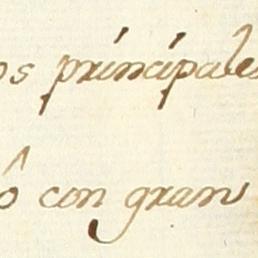 os príncípales
ó con gran